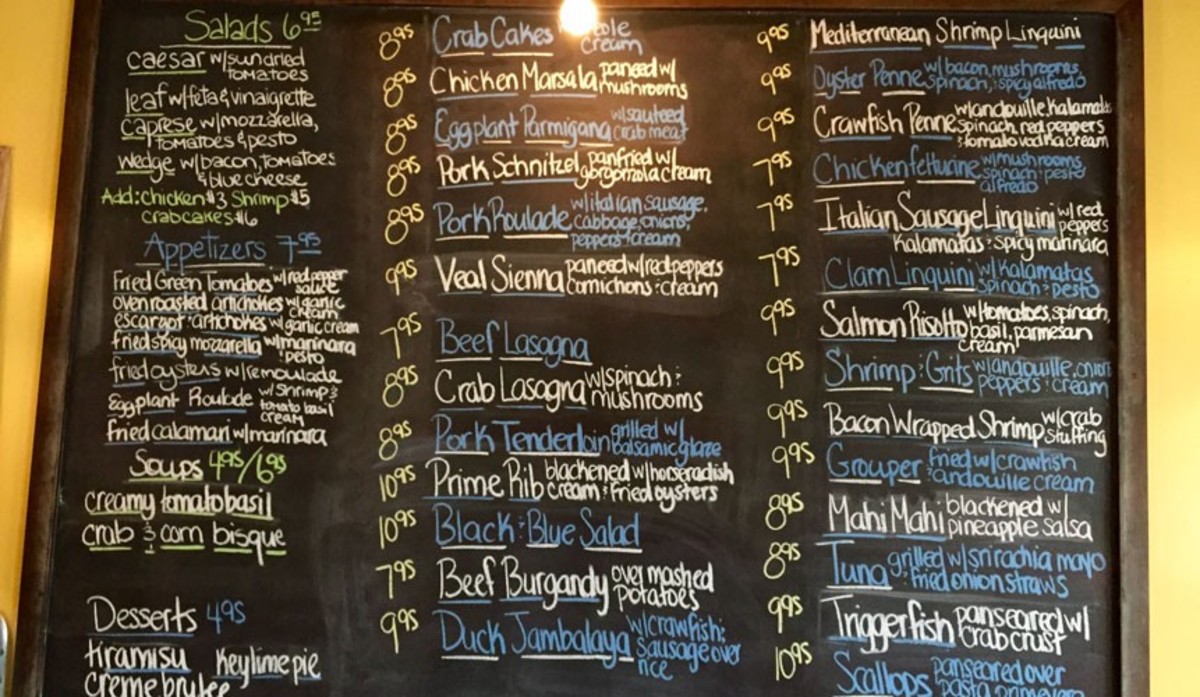 Salads 6.95
caesar w/sundried
tomatoes
leaf w/feta & vinaigrette
caprese w/mozzarella,
tomatoes & pesto
wedge w/bacon, tomatoes
& blue cheese
Add: chicken $3 Shrimp $5
crabcakes $6
Appetizers 7.95
Fried Green Tomatoes w/red pepper
sauce
oven roasted artichokes w/garlic
cream
escargot & artichokes w/garlic cream
fried spicy mozzarella w/marinara
& pesto
fried oysters w/remoulade
Eggplant Roulade w/shrimp &
tomato basil
cream
fried calamari w/marinara
Soups 4.95/6.95
creamy tomato basil
crab & corn bisque
Desserts 4.95
tiramisu Key lime pie
creme brulee
8.95 Crab Cakes
cream
8.95 Chicken Marsala paneed w/
mushrooms
8.95 Eggplant Parmigana w/sauteed
crab meat
8.95 Pork Schnitzel panfried w/
gorgonzola cream
8.95 Pork Roulade w/italian sausage,
cabbage, onions,
peppers & cream
9.95 Veal Sienna paneed w/red peppers
cornichons & cream
7.95 Beef Lasagna
8.95 Crab Lasagna w/spinach &
mushrooms
8.95 Pork Tenderloin grilled w/
balsamic glaze
10.95 Prime Rib blackened w/horseradish
cream & fried oysters
10.95 Black & Blue Salad
7.95 Beef Burgandy over mashed
potatoes
9.95 Duck Jambalaya w/crawfish &
sausage over
rice
9.95 Mediterranean Shrimp Linguini
9.95 Oyster Penne w/bacon, mushrooms,
spinach, & spicy alfredo
9.95 Crawfish Penne w/andouille, kalamata
spinach, red peppers
& tomato vodka cream
7.95 Chicken fetturine w/mushrooms
spinach & pesto
alfredo
7.95 Italian Sausage Linguini w/red
peppers
kalamatas & spicy marinara
7.95 Clam Linguini w/kalamatas
spinach & pesto
9.95 Salmon Risotto w/tomatoes, spinach,
basil, parmesan
cream
9.95 Shrimp & Grits w/andouille, onions
peppers & cream
9.95 Bacon Wrapped Shrimp w/crab
stuffing
9.95 Grouper fried w/crawfish
& andouille cream
8.95 Mahi Mahi blackened w/
pineapple salsa
8.95 Tuna grilled w/srirachia mayo
& fried onion straws
9.95 Triggerfish panseared w/
crab crust
10.95 Scallops panseared over
pasta